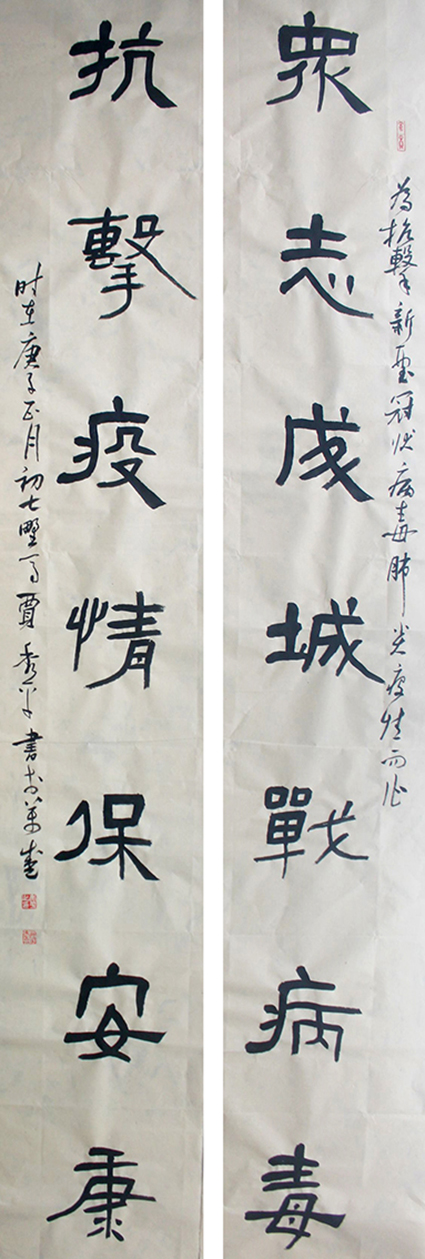 為抗擊新型冠状病毒肺炎疫情而作
眾志成城戰病毒
抗擊疫情保安康
时在庚子正月初七 賈秀 書於